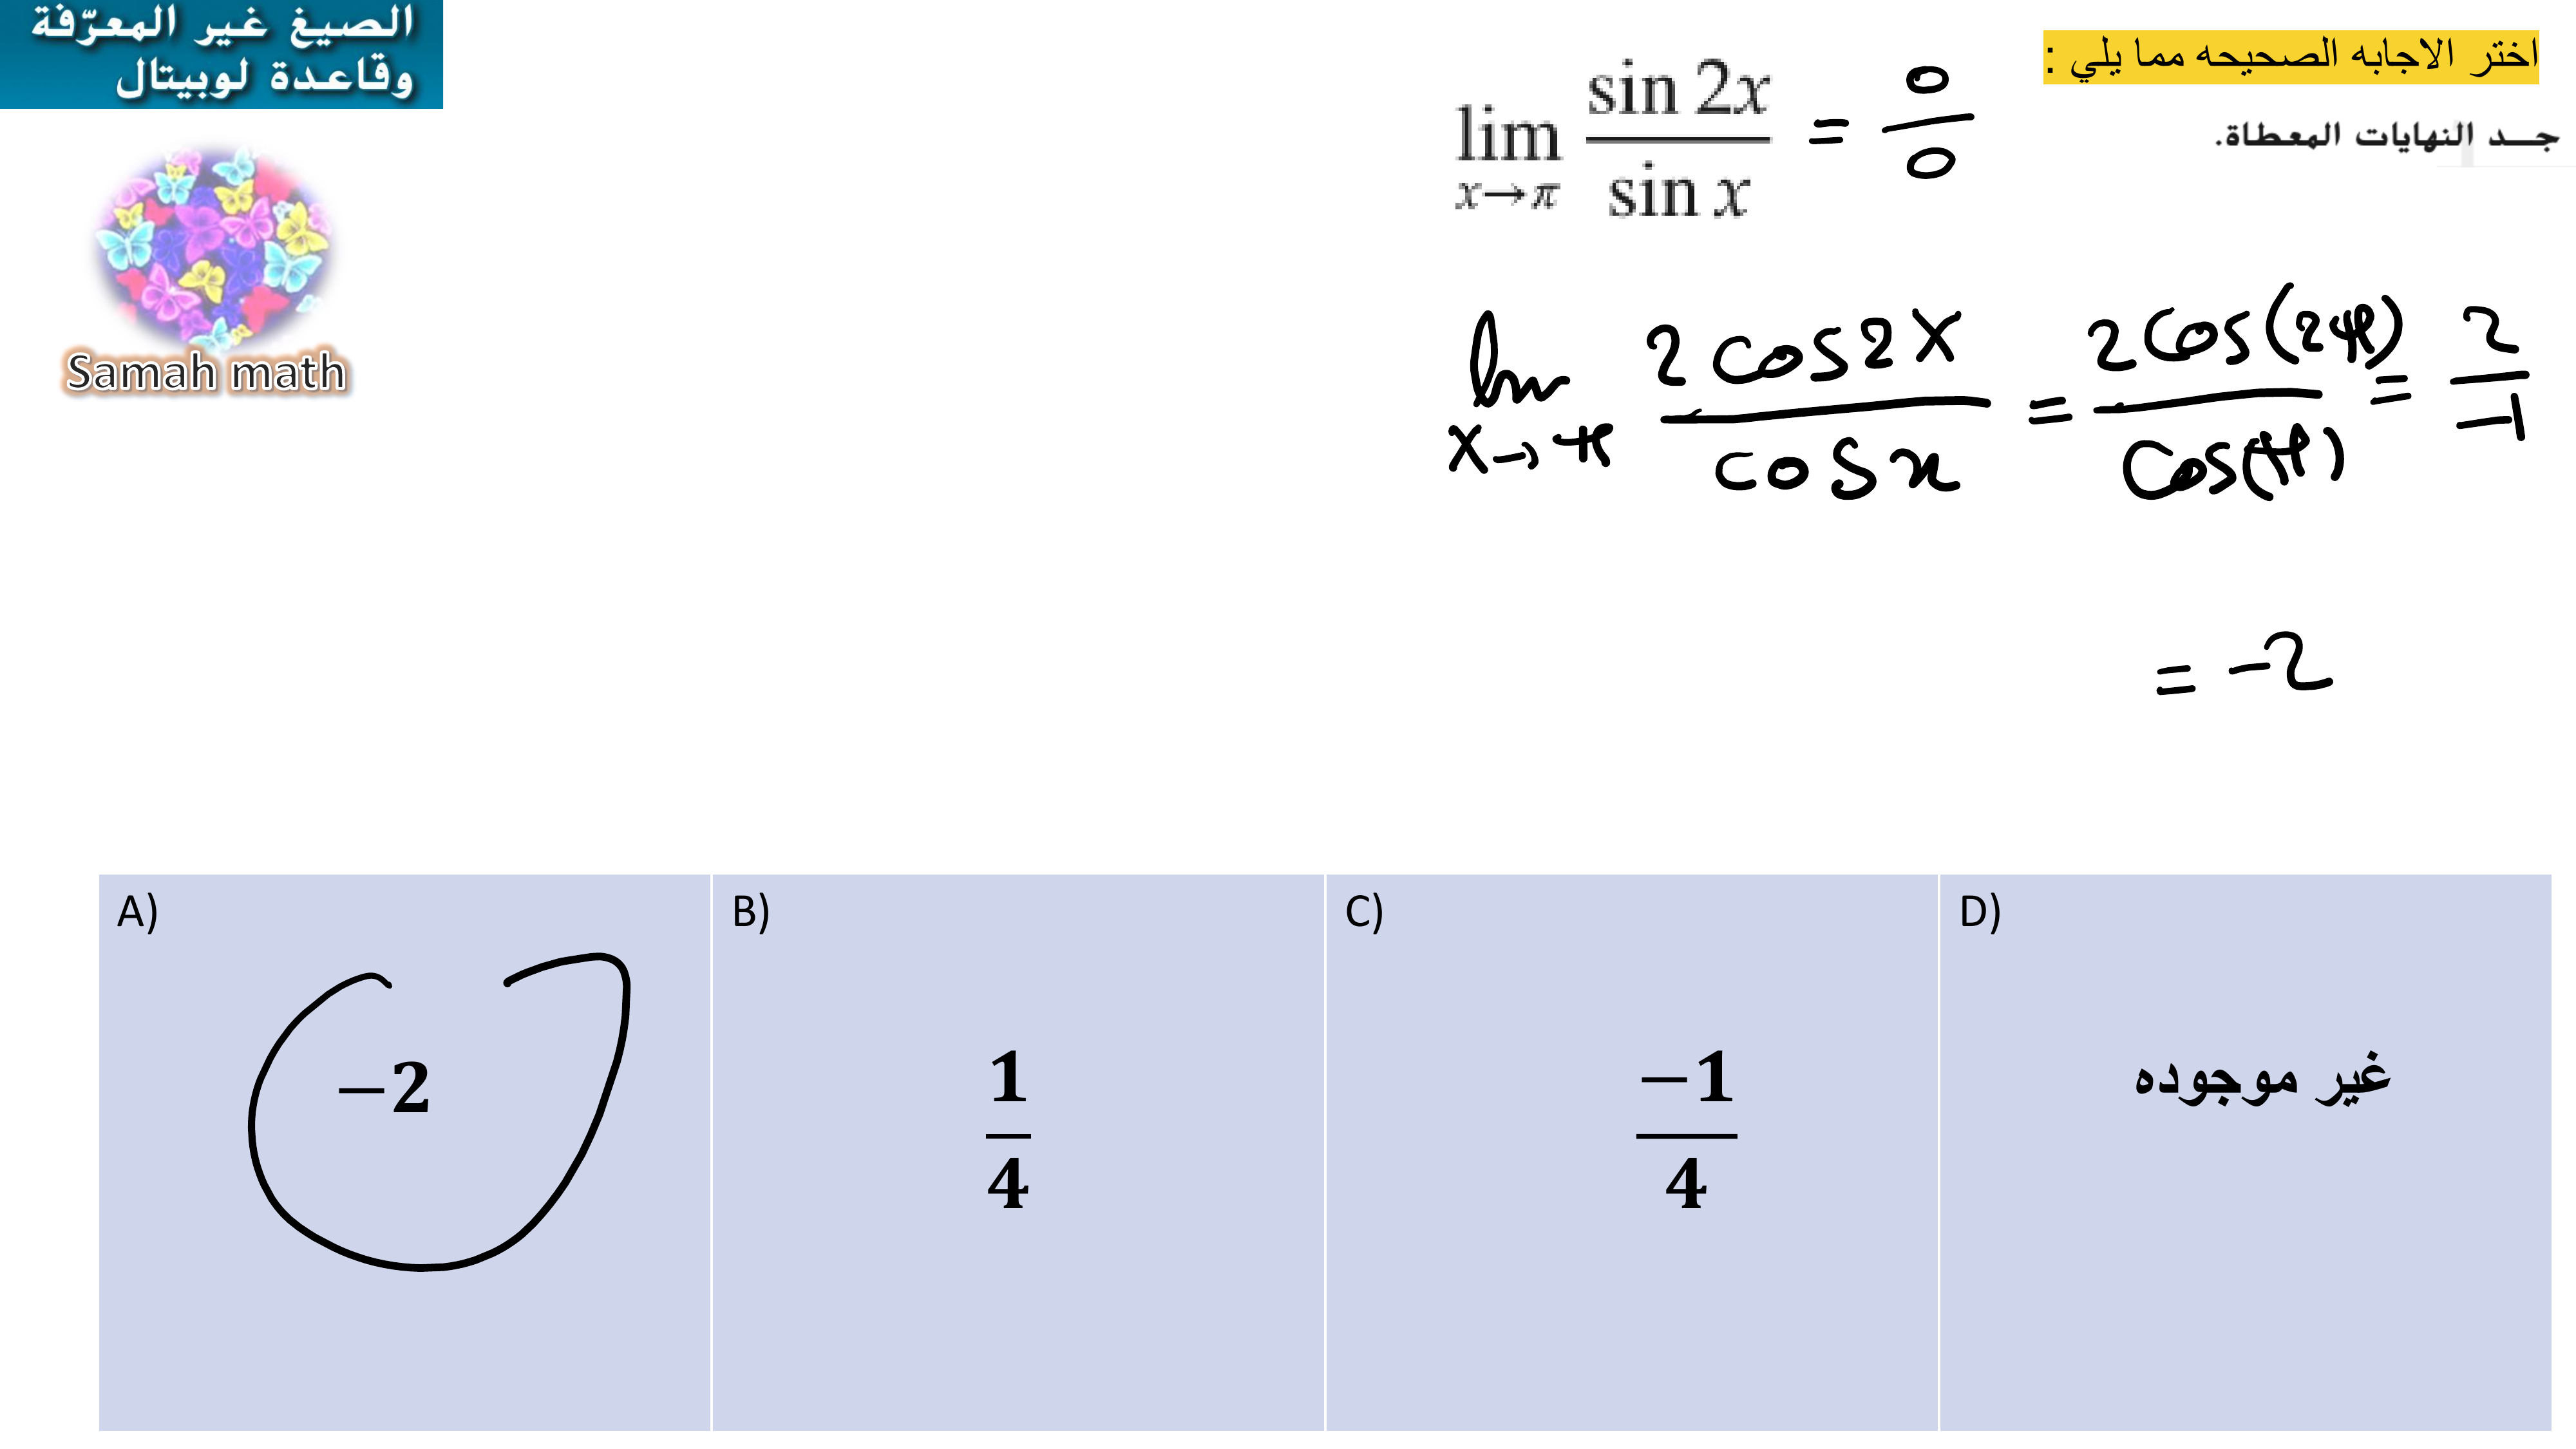 الصيغ غير المعرّفة
وقاعدة لوبيتال
Samah math
اختر الاجابه الصحيحه مما يلي :
جد النهايات المعطاة.
lim x→π sin 2x / sin x = 0/0
lim x→π 2cos2x / cosx = 2cos(2π) / cos(π) = 2/-1
= -2
A) −2
B) 1/4
C) −1/4
D) غير موجوده